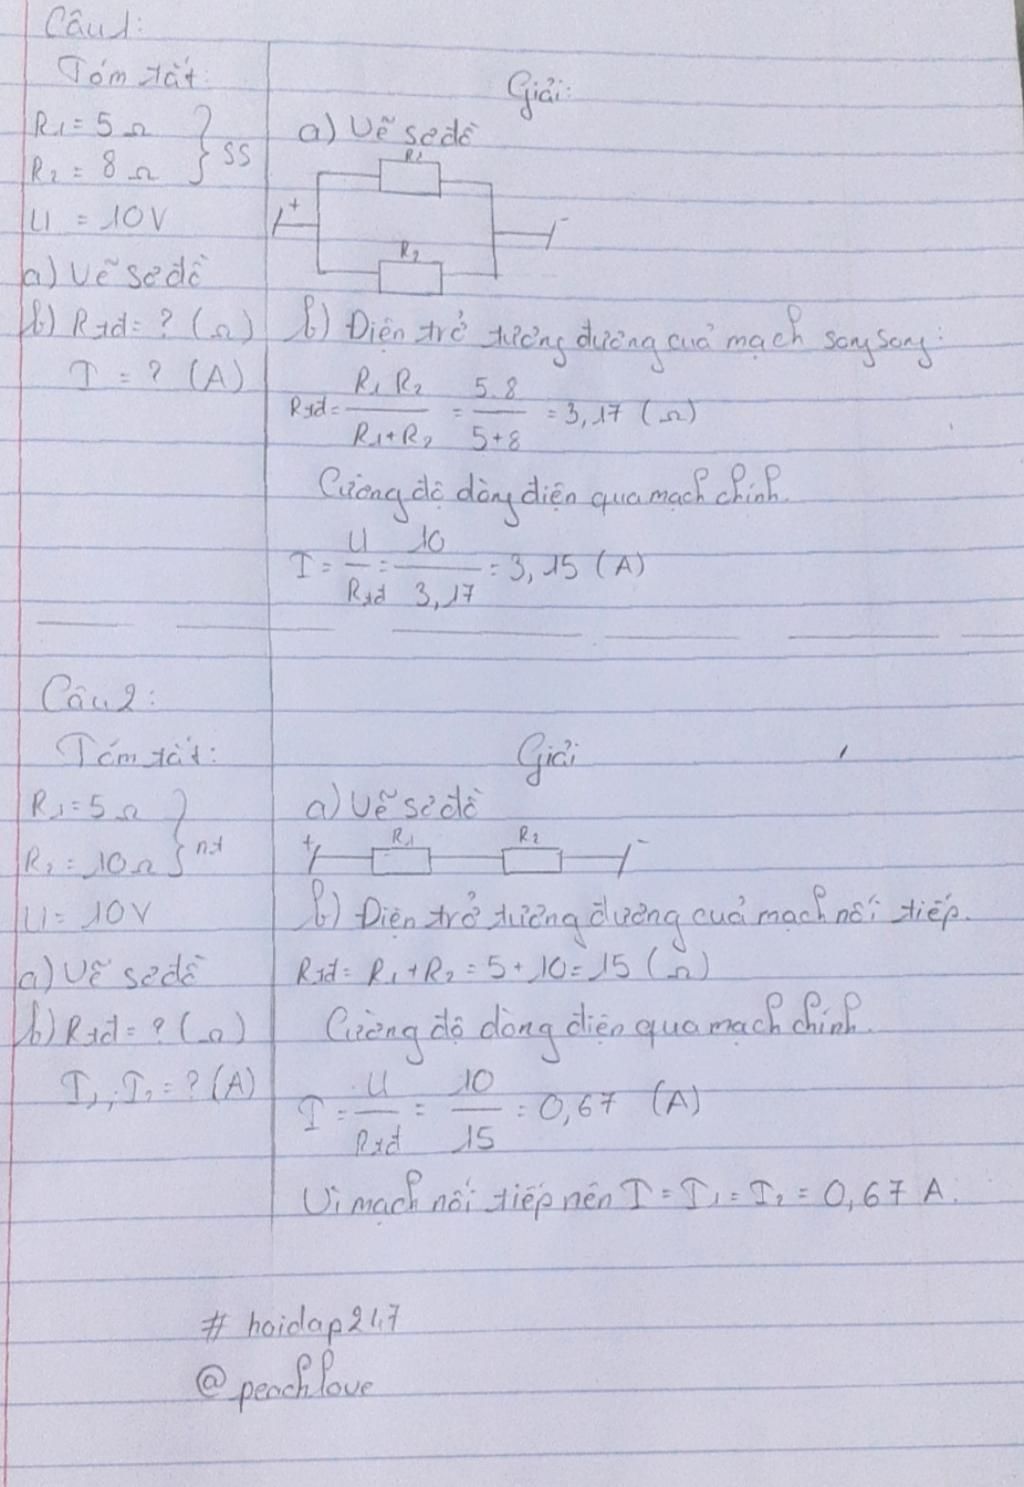 Câu 1:
Tóm tắt:
R₁ = 5 Ω
R₂ = 8 Ω } SS
U = 10V
a) Vẽ sơ đồ
b) Rtđ = ? (Ω)
I = ? (A)
Giải:
a) Vẽ sơ đồ
R₁
+ -
R₂
b) Điện trở tương đương cuả mạch song song:
Rtđ = R₁ R₂ / R₁+R₂ = 5.8 / 5+8 = 3,17 (Ω)
Cường độ dòng điện qua mạch chính.
I = U / Rtđ = 10 / 3,17 = 3,15 (A)
Câu 2:
Tóm tắt:
R₁ = 5 Ω
R₂ = 10 Ω } nt
U = 10V
a) Vẽ sơ đồ
b) Rtđ = ? (Ω)
I₁, I₂ = ? (A)
Giải
a) Vẽ sơ đồ
+ R₁ R₂ -
b) Điện trở tương đương cuả mạch nối tiếp.
Rtđ = R₁ + R₂ = 5 + 10 = 15 (Ω)
Cường độ dòng điện qua mạch chính.
I = U / Rtđ = 10 / 15 = 0,67 (A)
Vì mạch nối tiếp nên I = I₁ = I₂ = 0,67 A.
# hoidap247
@peachlove